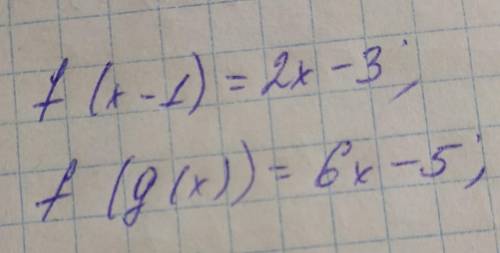 f (x - 1) = 2x - 3 ;
f (g(x)) = 6x - 5 ;